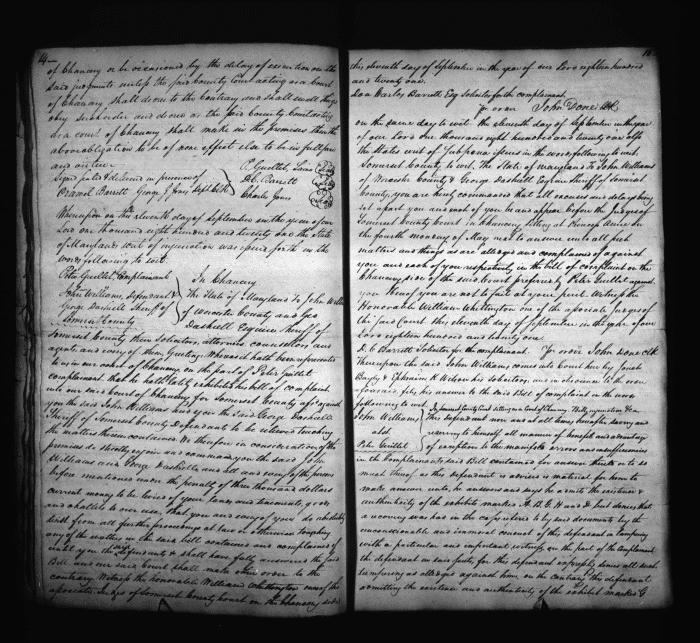 14
of Chancery or be occasioned by the delay of execution on the
said judgments unless the said County Court acting as a Court
of Chancery shall do to the contrary and shall in all things
obey such order and decree as the said County Court acting
as a court of Chancery shall make in the premises then the
above obligation to be of none effect else to be in full force
and virtue.
Signed sealed & delivered in presence of
P. Guillet, Seal
L. C. Barrett
Charles Jones
Whereupon on the eleventh day of September in the year of our
Lord one thousand eight hundred and twenty one the State
of Maryland's writ of injunction was issued forth in the
words following to wit.
Peter Guillet, Complainant
John Williams, Defendant &
George Dashiell Sheriff of
Somerset County
In Chancery
The State of Maryland to John Williams
of Worcester County and Geo
Dashiell Esquire Sheriff of
Somerset County their Solicitors, attornies counsellors, and
agents and every of them, Greeting. Whereas it hath been represented
to us in our court of Chancery on the part of Peter Guillet
complainant that he hath lately exhibited his bill of complaint
into our said Court of Chancery for Somerset County against
you the said John Williams and you the said George Dashiell
Sheriff of Somerset County Defendants to be relieved touching
the matters therein contained. We therefore in consideration of the
premises do strictly enjoin and command you the said John
Williams and George Dashiell, and all and every of the persons
before mentioned under the penalty of three thousand dollars
current money to be levied of your lands and tenements, goods
and chattels to our use, that you and every of you do absolutely
desist from all further proceedings at law or otherwise touching
any of the matters in the said bill contained and complained of
until you the said Defendants shall have fully answered the said
Bill and our said Court shall make other order to the
contrary. Witness the honorable William Whittington one of the
associate Judges of Somerset County Court in the Chancery side
this eleventh day of September in the year of our Lord eighteen hundred
and twenty one.
Barrett Esq Solicitor for the complainant.
John Done Clk
on the same day to wit the eleventh day of September in the year
of our Lord one thousand eight hundred and twenty one
the States writ of Subpoena issued in the words following to wit.
Somerset County to wit. The State of Maryland to John Williams
of Worcester County & George Dashiell Esquire Sheriff of Somerset
County, you are hereby commanded that all excuses and delays being
set apart you and each of you be and appear before the Judges of
Somerset County Court in Chancery sitting at Princess Anne on
the fourth monday of May next to answer unto all such
matters and things as are alledged and complained of against
you and each of you respectively in the bill of complaint on the
Chancery side of the said Court preferred by Peter Guillet against
you. Hereof you are not to fail at your peril. Witness the
Honorable William Whittington one of the associate Judges of
the said Court this eleventh day of September in the year of our
Lord eighteen hundred and twenty one.
L. C. Barrett Solicitor for the complainant. John Done Clk
Thereupon the said John Williams comes into Court here by Josiah
Bayly & Ephraim K. Wilson his solicitors, and in obedience to the writ
aforesaid files his answer to the said Bill of complaint in the words
following to wit.
John Williams
ads
Peter Guillet
In Somerset County Court sitting as a Court of Chancery. Bill, injunction &c
This defendant now and at all times hereafter saving and
reserving to himself all manner of benefit and advantage
of exception to the manifold errors and insufficiencies
in the Complainants said Bill contained for answer thereto or to so
much thereof as this defendant is advised is material for him to
make answer unto, he answers and says he admits the existence &
authenticity of the exhibits marked A. B. but denies that
a recovery was had in the cases referred to by said documents by the
unconscionable and immoral conduct of this defendant in tampering
with a particular and important witness on the part of the complainant
the defendant in said suits, for this defendant expressly denies all such
tampering as alledged against him, on the contrary this defendant
admitting the existence and authenticity of the exhibit marked G